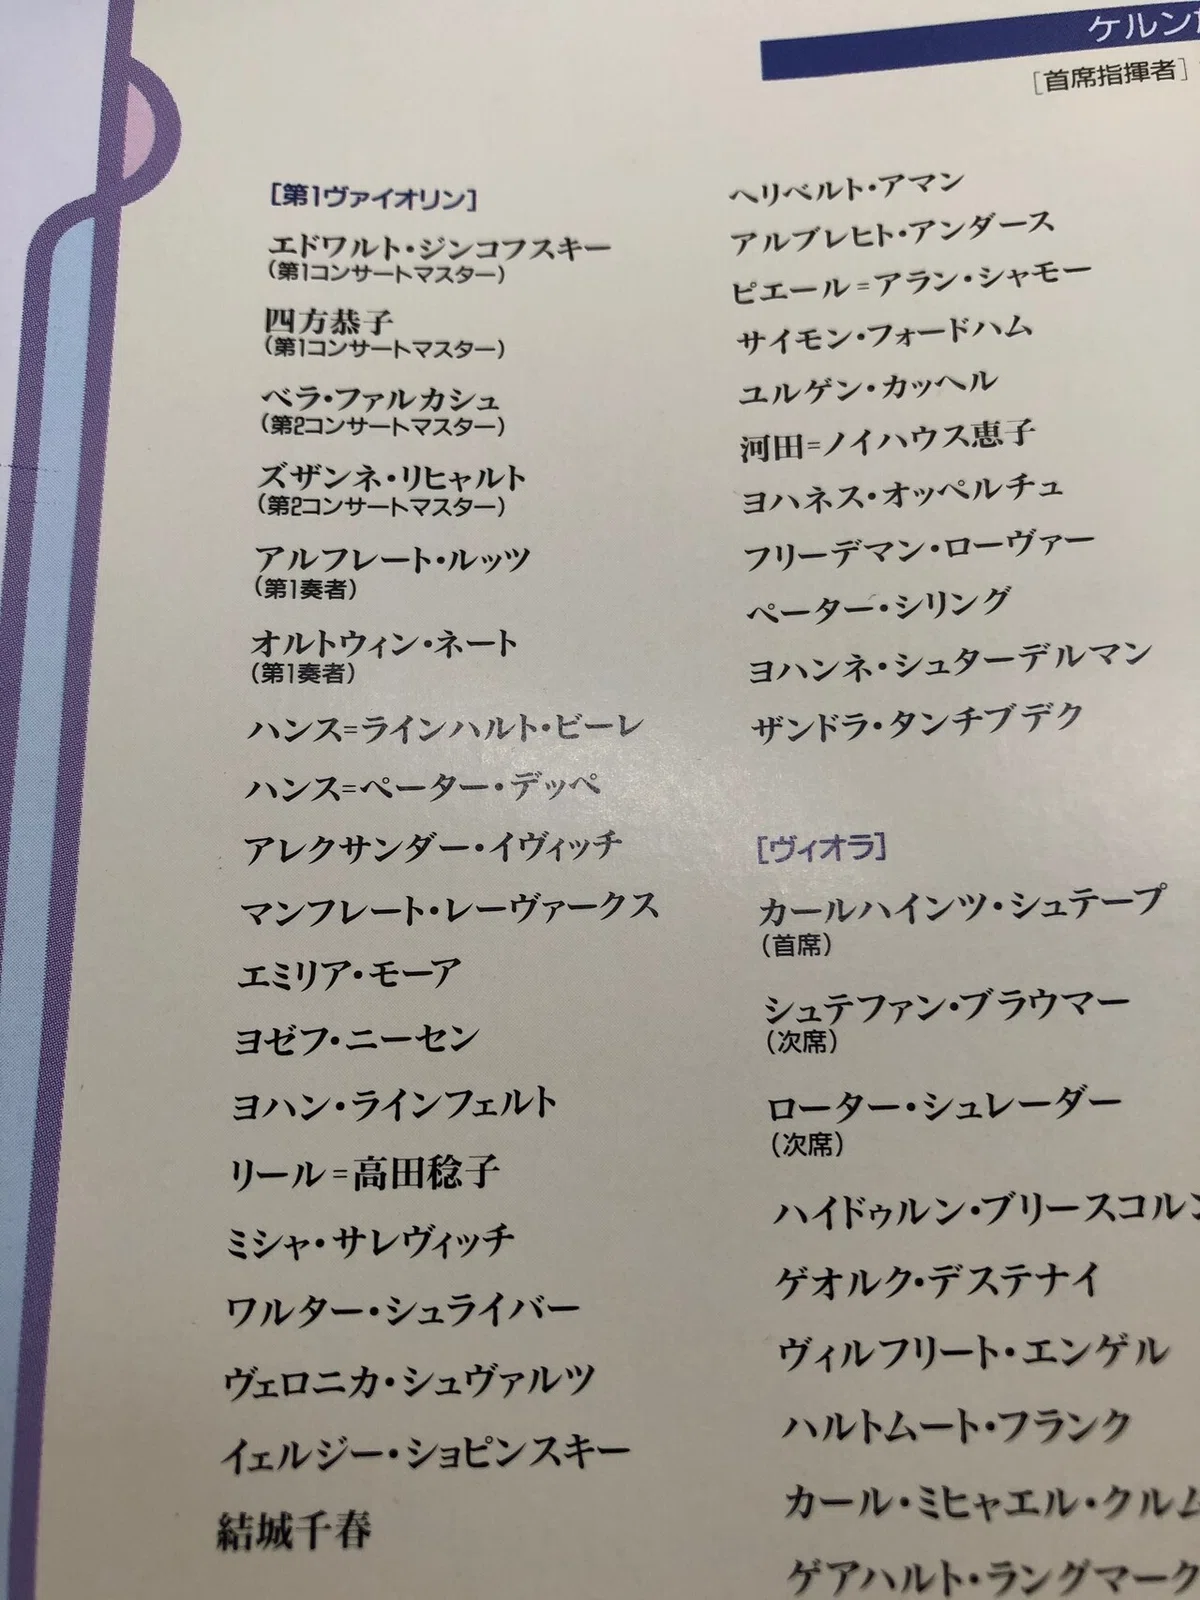 ケルン
[首席指揮者]
[第1ヴァイオリン]
エドワルト・ジンコフスキー
(第1コンサートマスター)
四方恭子
(第1コンサートマスター)
ベラ・ファルカシュ
(第2コンサートマスター)
ズザンネ・リヒャルト
(第2コンサートマスター)
アルフレート・ルッツ
(第1奏者)
オルトウィン・ネート
(第1奏者)
ハンス=ラインハルト・ビーレ
ハンス=ペーター・デッペ
アレクサンダー・イヴィッチ
マンフレート・レーヴァークス
エミリア・モーア
ヨゼフ・ニーセン
ヨハン・ラインフェルト
リール=高田稔子
ミシャ・サレヴィッチ
ワルター・シュライバー
ヴェロニカ・シュヴァルツ
イェルジー・ショピンスキー
結城千春
ヘリベルト・アマン
アルブレヒト・アンダース
ピエール=アラン・シャモー
サイモン・フォードハム
ユルゲン・カッヘル
河田=ノイハウス恵子
ヨハネス・オッペルチュ
フリーデマン・ローヴァー
ペーター・シリング
ヨハンネ・シュターデルマン
ザンドラ・タンチブデク
[ヴィオラ]
カールハインツ・シュテープ
(首席)
シュテファン・ブラウマー
(次席)
ローター・シュレーダー
(次席)
ハイドゥルン・ブリースコルン
ゲオルク・デステナイ
ヴィルフリート・エンゲル
ハルトムート・フランク
カール・ミヒャエル・クルム
ゲアハルト・ラングマーク